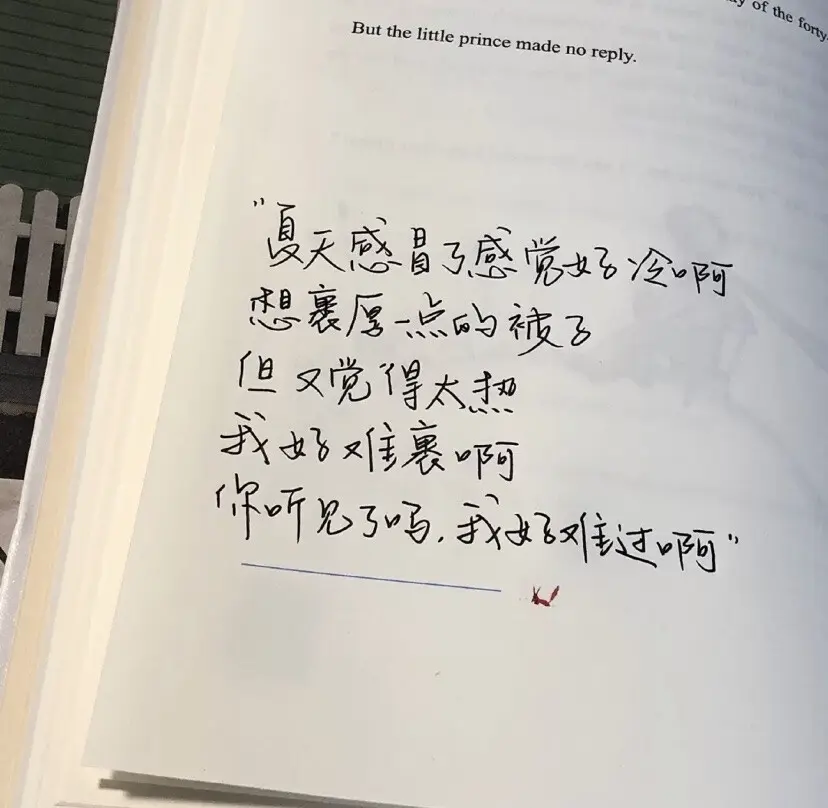 of the forty
But the little prince made no reply.
"夏天感冒了感觉好冷啊
想裹厚一点的被子
但又觉得太热
我好难裹啊
你听见了吗,我好难过啊"